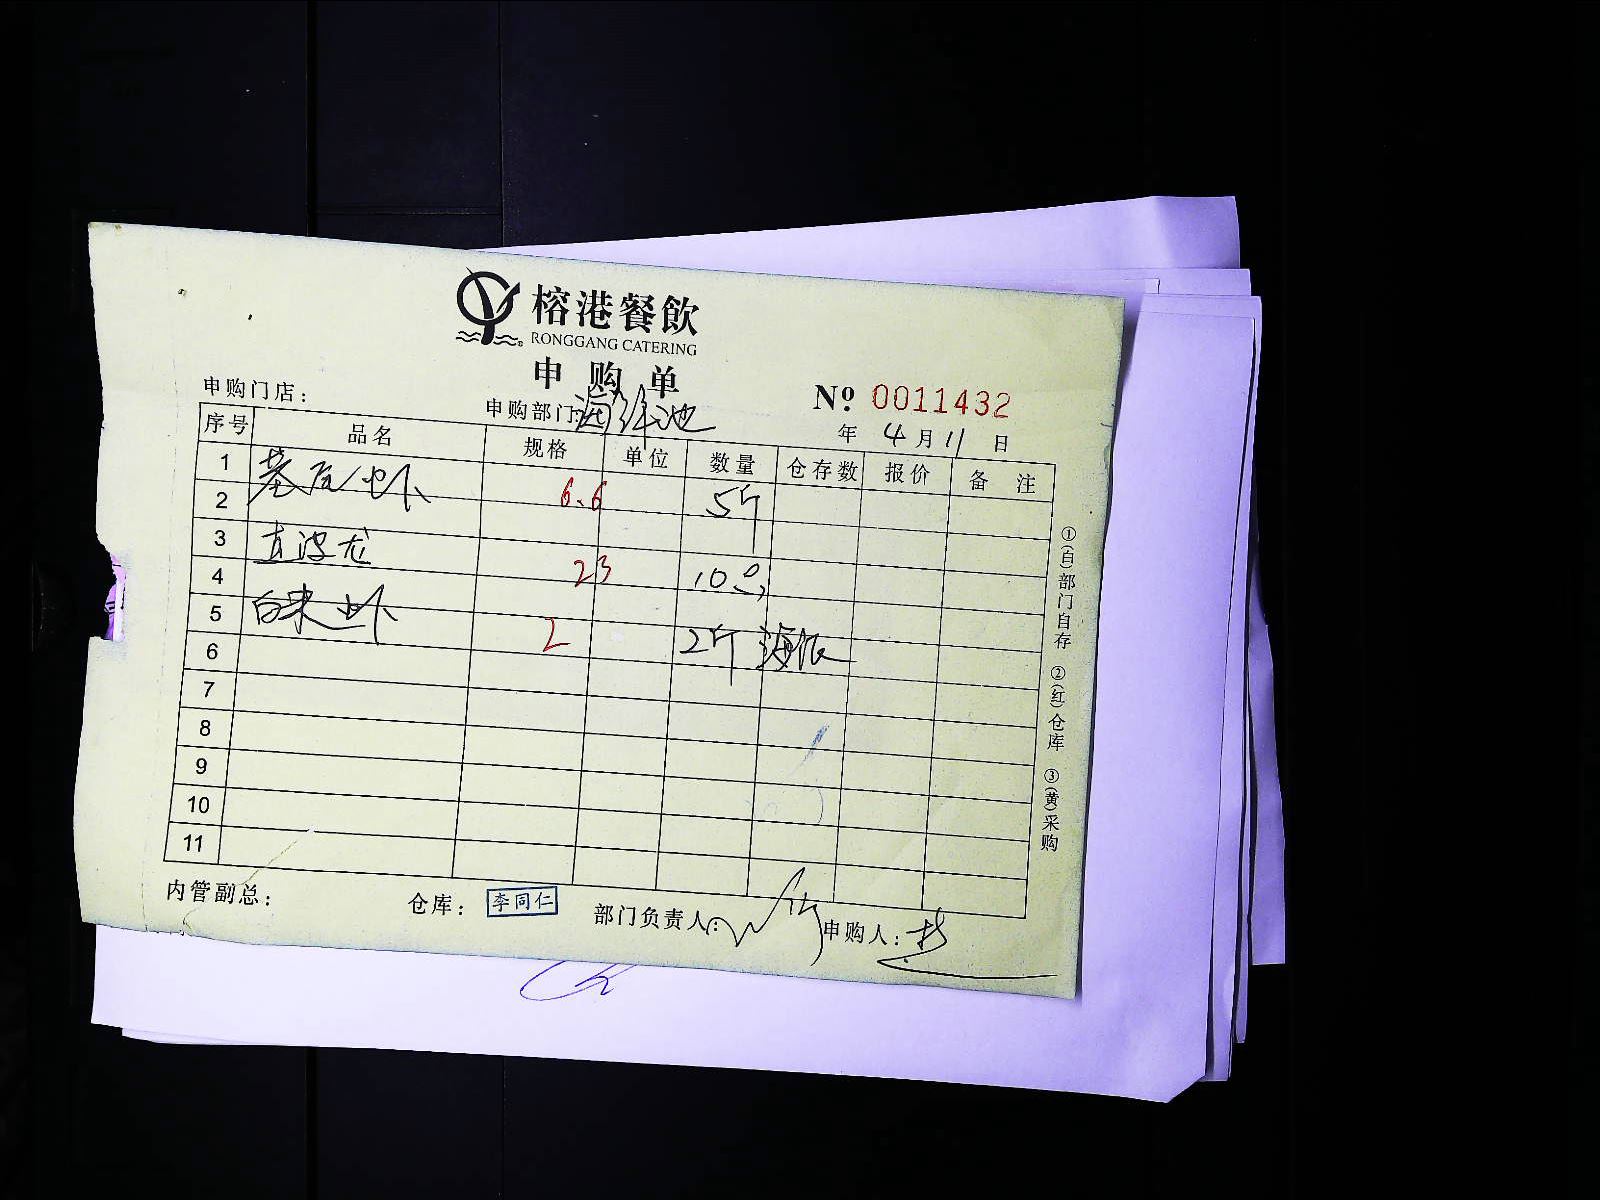 榕港餐飲
RONGGANG CATERING
申购单
申购门店：
申购部门：海鲜池
№ 0011432
年 4月11日
序号 品名 规格 单位 数量 仓存数 报价 备注
1 基尾虾 6.6 5斤
2
3 直波龙 23 10只
4
5 白米虾 2 2斤
6
7
8
9
10
11
内管副总：
仓库：李同仁
部门负责人：
申购人：
①(白)部门自存 ②(红)仓库 ③(黄)采购